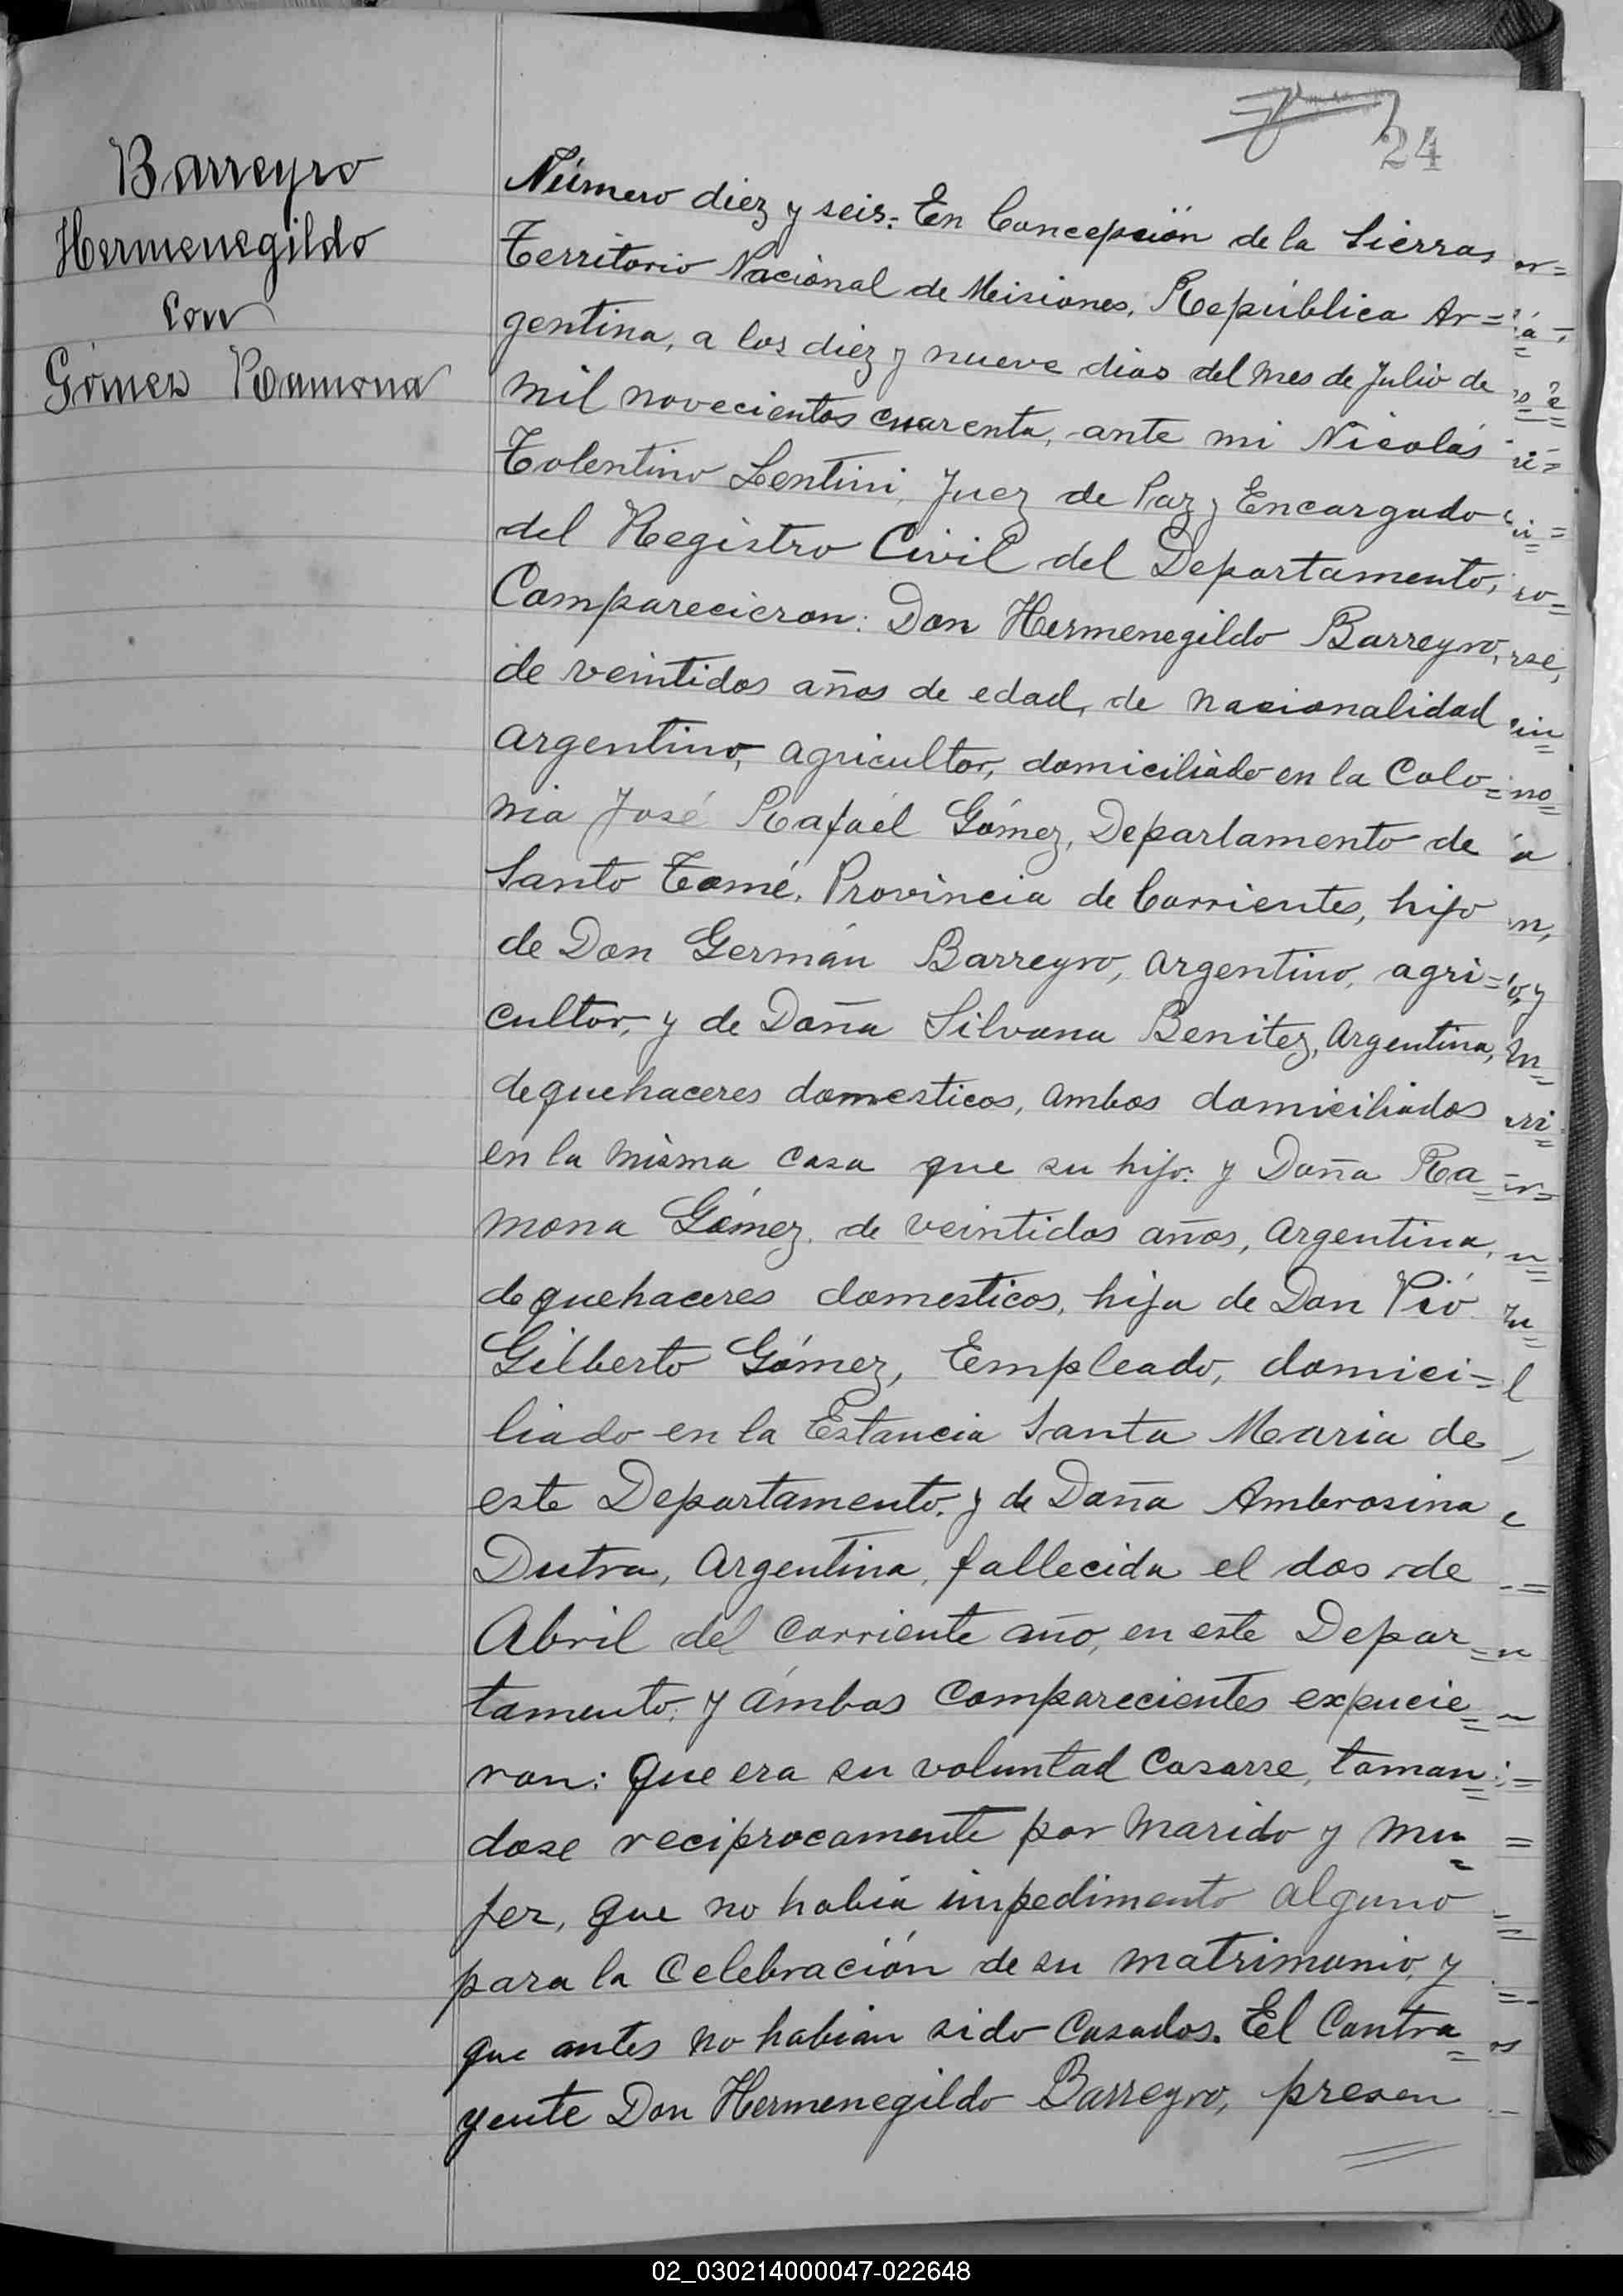 24
Barreyro
Hermenegildo
con
Gómez Ramona
Número diez y seis: En Concepción de la Sierra,
Territorio Nacional de Misiones, República Ar=
gentina, a los diez y nueve dias del mes de Julio de
mil novecientos cuarenta, ante mi Nicolás
Tolentino Lentini, Juez de Paz y Encargado
del Registro Civil del Departamento,
Comparecieron: Don Hermenegildo Barreyro,
de veintidos años de edad, de nacionalidad
argentino, agricultor, domiciliado en la Colo=
nia José Rafaél Gómez, Departamento de
Santo Tomé, Provincia de Corrientes, hijo
de Don Germán Barreyro, argentino, agri=
cultor, y de Doña Silvana Benitez, Argentina,
de quehaceres domesticos, ambos domiciliados
en la misma casa que su hijo: y Doña Ra=
mona Gómez, de veintidos años, argentina,
de quehaceres domesticos, hija de Don Pió
Gilberto Gómez, Empleado, domici=
liado en la Estancia Santa Maria de
este Departamento, y de Doña Ambrosina
Dutra, Argentina, fallecida el dos de
Abril del corriente año, en este Depar=
tamento; y ámbos comparecientes expucie=
ron: que era su voluntad casarse, toman=
dose reciprocamente por marido y mu=
jer, que no había impedimento alguno
para la celebración de su matrimonio, y
que antes no habian sido casados. El Contra=
yente Don Hermenegildo Barreyro, presen
02_030214000047-022648